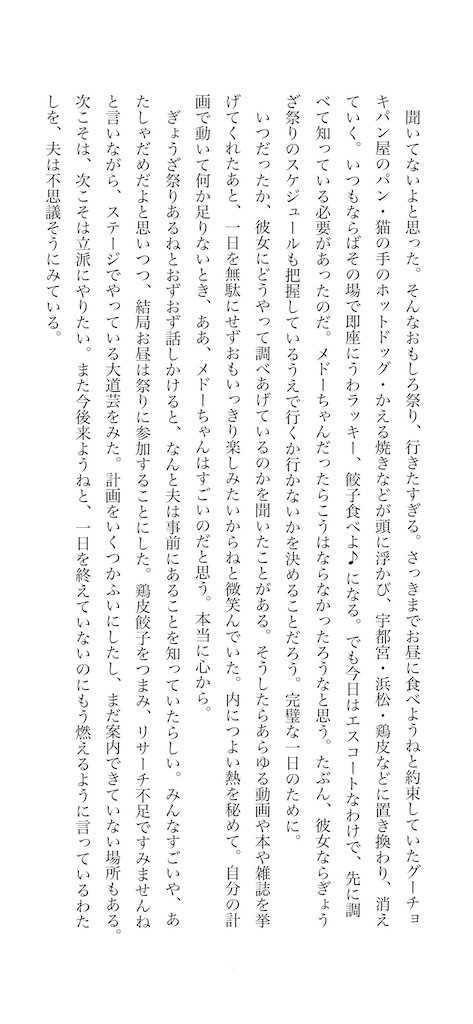 聞いてないよと思った。そんなおもしろ祭り、行きたすぎる。さっきまでお昼に食べようねと約束していたグーチョ
キパン屋のパン・猫の手のホットドッグ・かえる焼きなどが頭に浮かび、宇都宮・浜松・鶏皮などに置き換わり、消え
ていく。いつもならばその場で即座にうわラッキー、餃子食べよ♪になる。でも今日はエスコートなわけで、先に調
べて知っている必要があったのだ。メドーちゃんだったらこうはならなかったろうなと思う。たぶん、彼女ならぎょう
ざ祭りのスケジュールも把握しているうえで行くか行かないかを決めることだろう。完璧な一日のために。
いつだったか、彼女にどうやって調べあげているのかを聞いたことがある。そうしたらあらゆる動画や本や雑誌を挙
げてくれたあと、一日を無駄にせずおもいっきり楽しみたいからねと微笑んでいた。内につよい熱を秘めて。自分の計
画で動いて何か足りないとき、ああ、メドーちゃんはすごいのだと思う。本当に心から。
ぎょうざ祭りあるねとおずおず話しかけると、なんと夫は事前にあることを知っていたらしい。みんなすごいや、あ
たしゃだめだよと思いつつ、結局お昼は祭りに参加することにした。鶏皮餃子をつまみ、リサーチ不足ですみませんね
と言いながら、ステージでやっている大道芸をみた。計画をいくつかふいにしたし、まだ案内できていない場所もある。
次こそは、次こそは立派にやりたい。また今後来ようねと、一日を終えていないのにもう燃えるように言っているわた
しを、夫は不思議そうにみている。